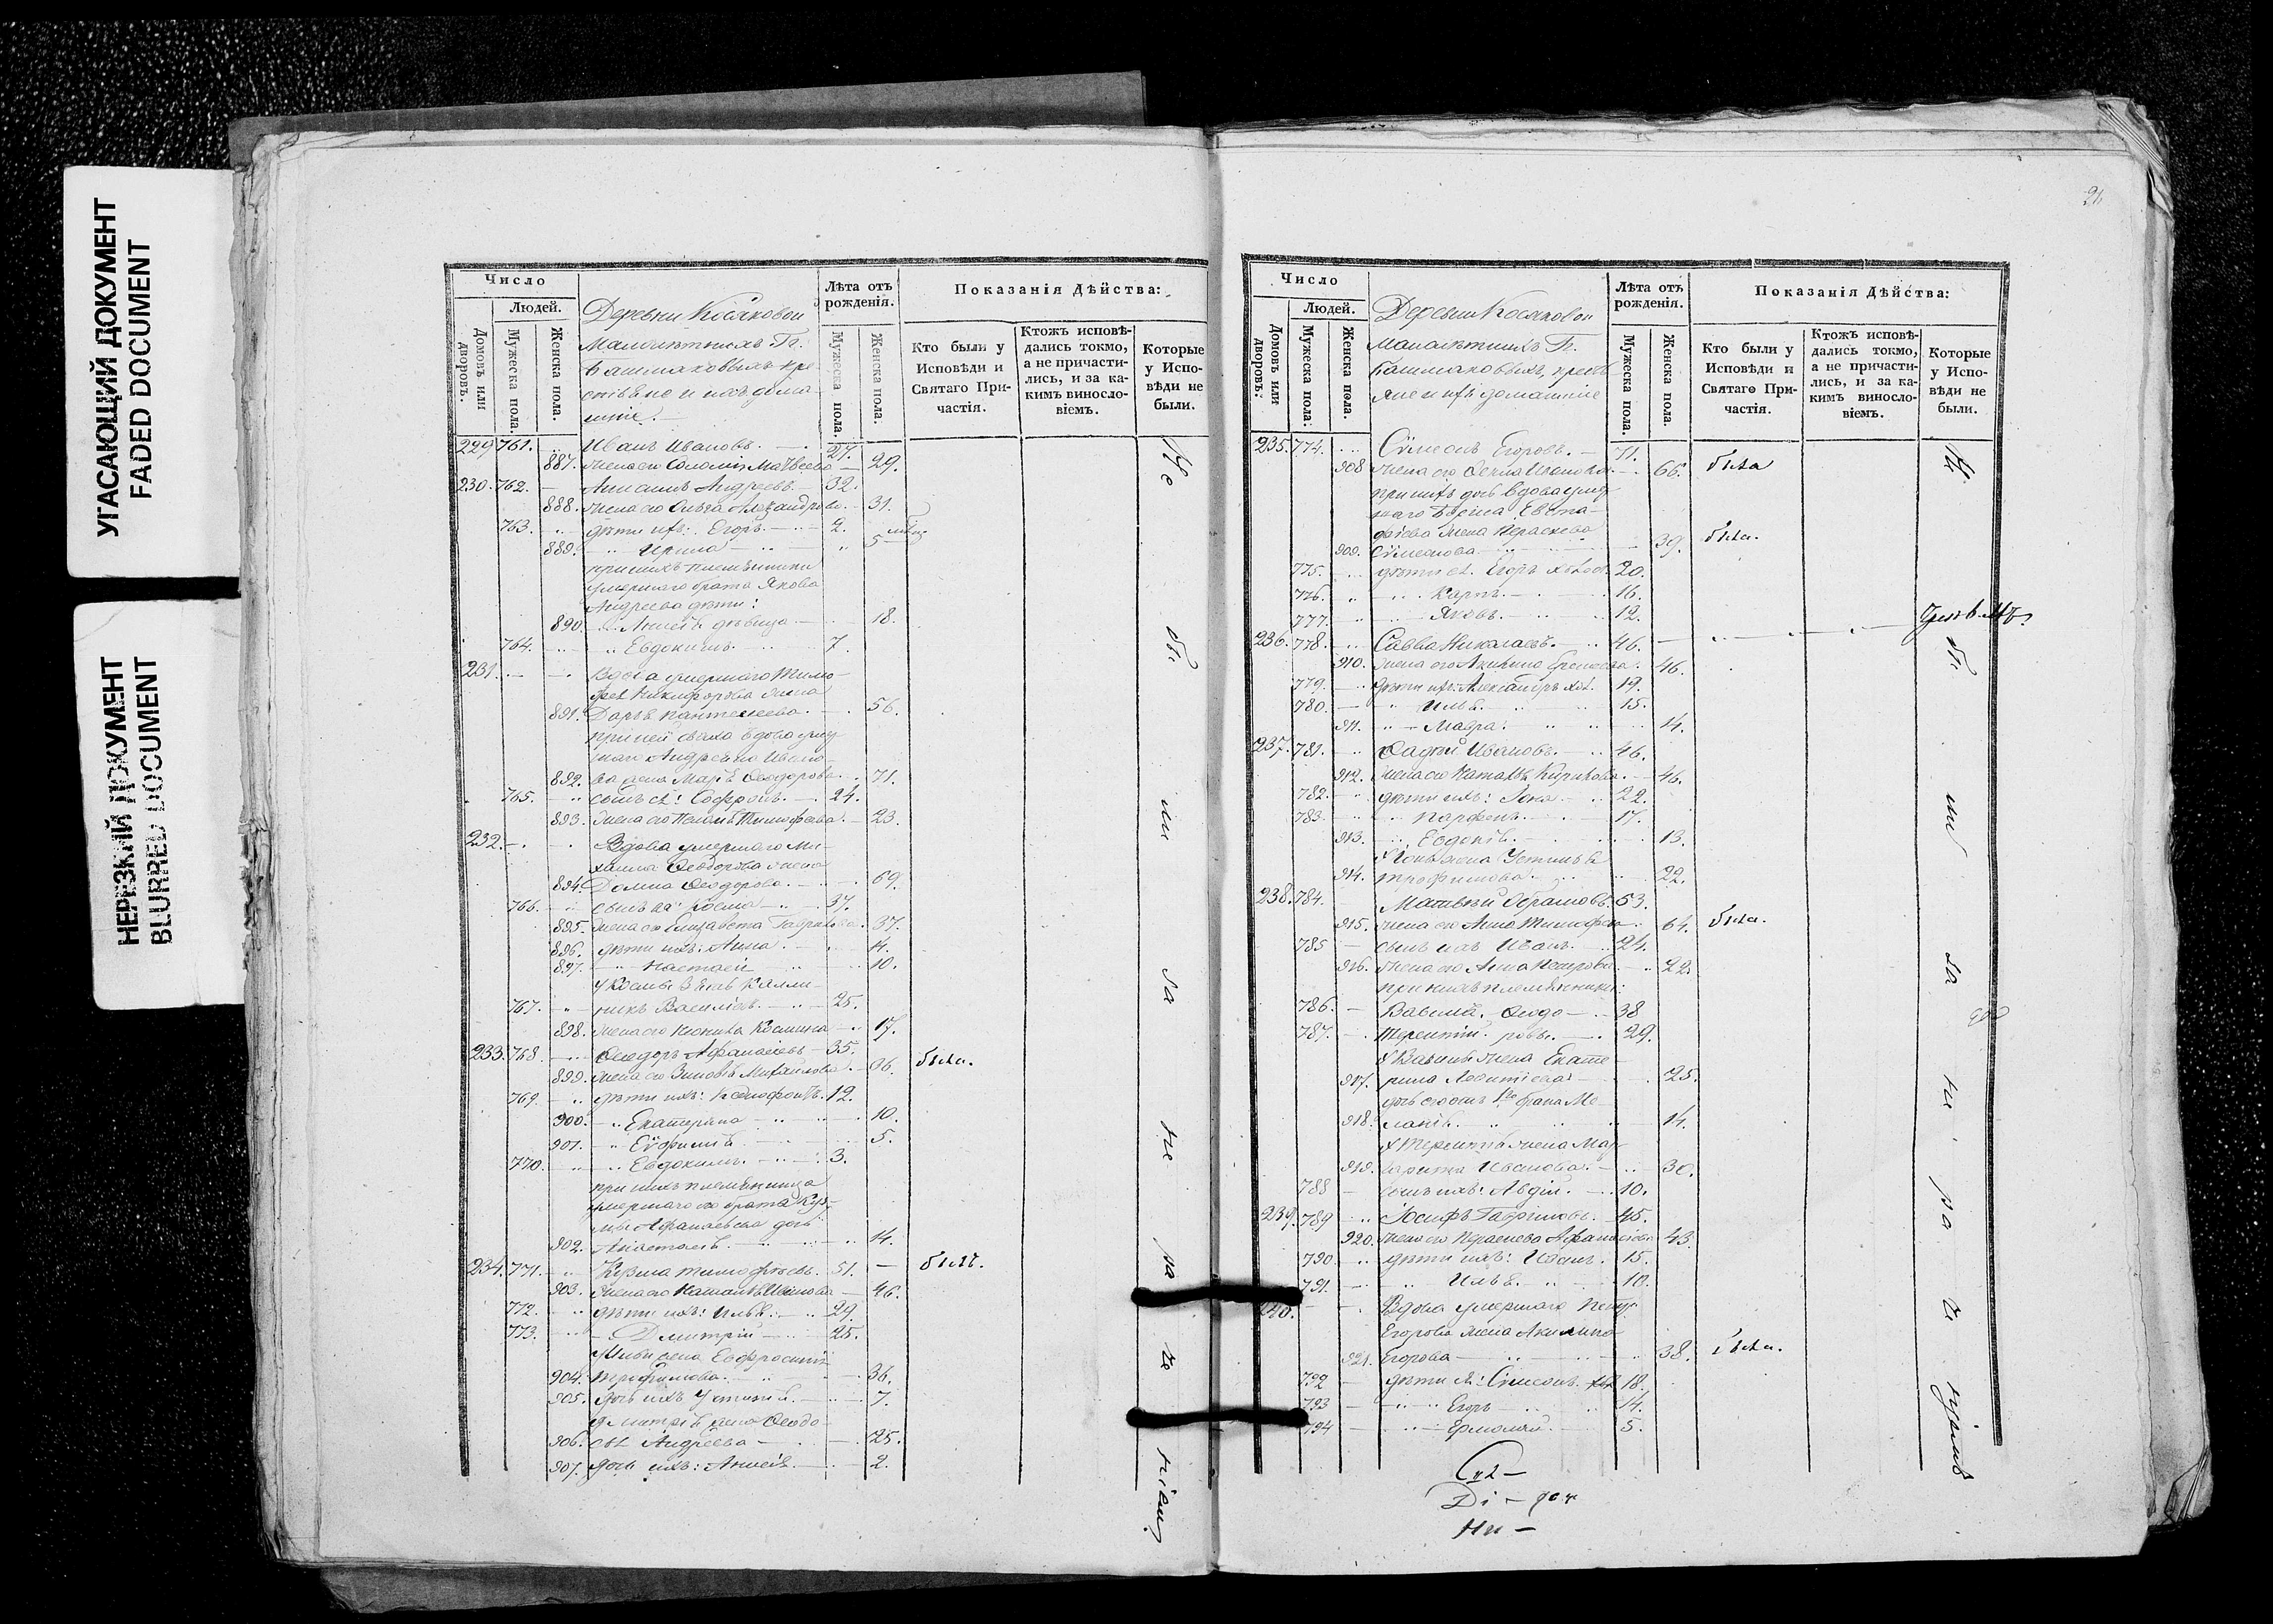 УГАСАЮЩИЙ ДОКУМЕНТ
FADED DOCUMENT
НЕРЕЗКИЙ ДОКУМЕНТ
BLURRED DOCUMENT
Число
Людей.
Домовъ или дворовъ.
Мужеска пола.
Женска пола.
Деревни Косяковой
Малолѣтныхъ Гг.
Башмаковыхъ кре
стьяне и ихъ дома
шніе.
Лѣта отъ рожденія.
Мужеска пола.
Женска пола.
Показанія Дѣйства:
Кто были у Исповѣди и Святаго Причастія.
Ктожъ исповѣдались токмо, а не причастились, и за какимъ винословіемъ.
Которые у Исповѣди не были.
229 761. Иванъ Ивановъ. 27.
887. жена его Соломія Матвеева 29.
230. 762. Андреевъ 32.
888. жена его Ольга Александрова 31.
763. дѣти ихъ: Егоръ 2.
889. Ирина 5
при нихъ племянники
умершаго брата Якова
Андреева дѣти:
890. дѣвица 18.
764. Евдокимъ. 7.
231. Вдова умершаго Тимо
фея Никифорова жена
891. Дарья Пантелеева. 56.
при ней сваха вдова умер
шаго Андреяна Ивано
892. ва жена Марья Ѳеодорова. 71.
765. сынъ ея: Софронъ. 24.
893. жена его Тимофеева. 23.
232. Вдова умершаго Ми
хаила Ѳеодорова жена
894. Домна Ѳеодорова. 69.
766. сынъ ея: Косма 37.
895. жена его Елизавета Гаврилова. 37.
896. дѣти ихъ: Анна. 14.
897. Настасія 10.
У Космы зять Калли
767. никъ Васильевъ. 25.
898. жена его Космина 17.
233. 768. Ѳеодоръ Афанасьевъ 35.
899. жена его Зиновья Михайлова 36. была.
769. дѣти ихъ: Ксенофонтъ. 12.
900. Екатерина 10.
901. Еѵфимія 5.
770. Евдокимъ. 3.
при нихъ племянница
умершаго его брата Куз
мы Афанасьева дочь
902. Анастасія. 14.
234. 771. Кузма Тимофѣевъ. 51. былъ.
903. жена его Наталья Иванова 46.
772. дѣти ихъ: Илья. 29.
773. Дмитрій 25.
У Ильи жена Евфросинія
904. Трофимова. 36.
905. дочь ихъ Устинія. 7.
У Дмитрія жена Ѳеодо
906. Андреева 25.
907. дочь ихъ: 2.
Не бы ли за не ра че ніемъ
Число
Людей.
Домовъ или дворовъ.
Мужеска пола.
Женска пола.
Деревни Косяковой
Малолѣтнихъ Гг.
Башмаковыхъ кресть
яне и ихъ домашніе
Лѣта отъ рожденія.
Мужеска пола.
Женска пола.
Показанія Дѣйства:
Кто были у Исповѣди и Святаго Причастія.
Ктожъ исповѣдались токмо, а не причастились, и за какимъ винословіемъ.
Которые у Исповѣди не были.
235. 774. Сѵмеонъ Егоровъ. 71.
908 жена его Иванова 66. была
при нихъ дочь вдова умер
шаго Евста
фіева жена Параскева
909. Сѵмеонова 39. была.
775. дѣти ея. Егоръ хол. 20.
776. Карпъ. 16.
777. Яковъ. 12.
236. 778. Савва Николаевъ. 46.
910. жена его Акилина 46.
779. дѣти ихъ: Александръ хол. 19.
780. Илья. 15.
911. Мавра. 14.
237. 781. Ѳадей Ивановъ. 46.
912. жена его Наталья Кирилова. 46.
782. дѣти ихъ: Іона 22.
783. Парфенъ. 17.
913. Евдокія. 13.
У Іоны жена Устинья
914. Трофимова 22.
238. 784. Матвей Абрамовъ. 53.
915. жена его Анна Тимофеева 64. была.
785 сынъ ихъ Иванъ. 24.
916. жена его Анна Петрова 22.
при нихъ племянники:
786. Вавила. Ѳеодо 38
787. Терентій. ровы. 29.
У Вавилы жена Екате
917. рина Леонтіева 25.
дочь его отъ 1го брака Ме
918. ланія. 14.
У Терентія жена Мар
919. гарита Иванова. 30.
788 сынъ ихъ: Авдій. 10.
239. 789 Іосифъ Гавриловъ. 45.
920. жена его Параскева Афанасіева 43.
790 дѣти ихъ: Иванъ. 15.
791. Илья. 10.
240. Вдова умершаго Петра
Егорова жена Акилина
921. Егорова 38. была.
792 дѣти ея: Симеонъ. хол 18.
793 Егоръ 14.
794 Ермолай. 5.
Не бы ли за не ра че ніемъ